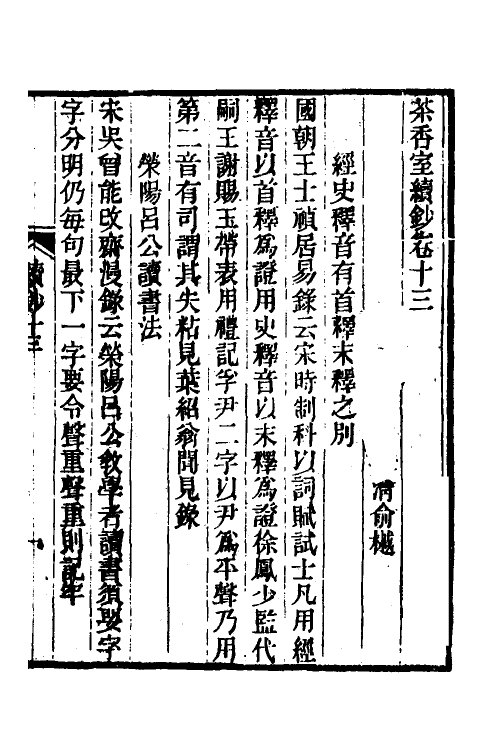 茶香室續鈔卷十三
清俞樾
經史釋音有首釋末釋之別
國朝王士禎居易錄云宋時制科以詞賦試士凡用經
釋音以首釋為證用史釋音以末釋為證徐鳳少監代
嗣王謝賜玉帶表用禮記孚尹二字以尹為平聲乃用
第二音有司謂其失粘見葉紹翁聞見錄
榮陽呂公讀書法
宋吳曾能改齋慢錄云榮陽呂公教學者讀書須要字
字分明仍每句最下一字要令聲重聲重則記牢
續鈔十三